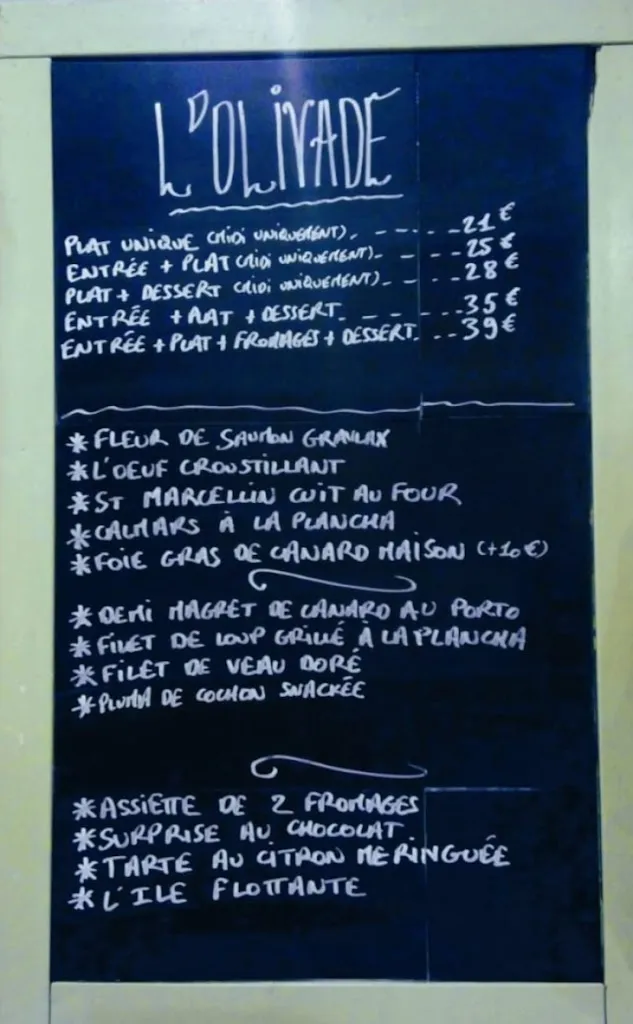 L'OLIVADE
PLAT UNIQUE (MIDI UNIQUEMENT). - - - . - 21 €
ENTRÉE + PLAT (MIDI UNIQUEMENT). - - - - 25 €
PLAT + DESSERT (MIDI UNIQUEMENT). - - - 28 €
ENTRÉE + PLAT + DESSERT. - - - - . 35 €
ENTRÉE + PLAT + FROMAGES + DESSERT. . - - 39 €
* FLEUR DE SAUMON GRAVLAX
* L'OEUF CROUSTILLANT
* ST MARCELLIN CUIT AU FOUR
* CALMARS À LA PLANCHA
* FOIE GRAS DE CANARD MAISON (+10 €)
* DEMI MAGRET DE CANARD AU PORTO
* FILET DE LOUP GRILLÉ À LA PLANCHA
* FILET DE VEAU DORÉ
* PLUMA DE COCHON SNACKÉE
* ASSIETTE DE 2 FROMAGES
* SURPRISE AU CHOCOLAT
* TARTE AU CITRON MERINGUÉE
* L'ILE FLOTTANTE